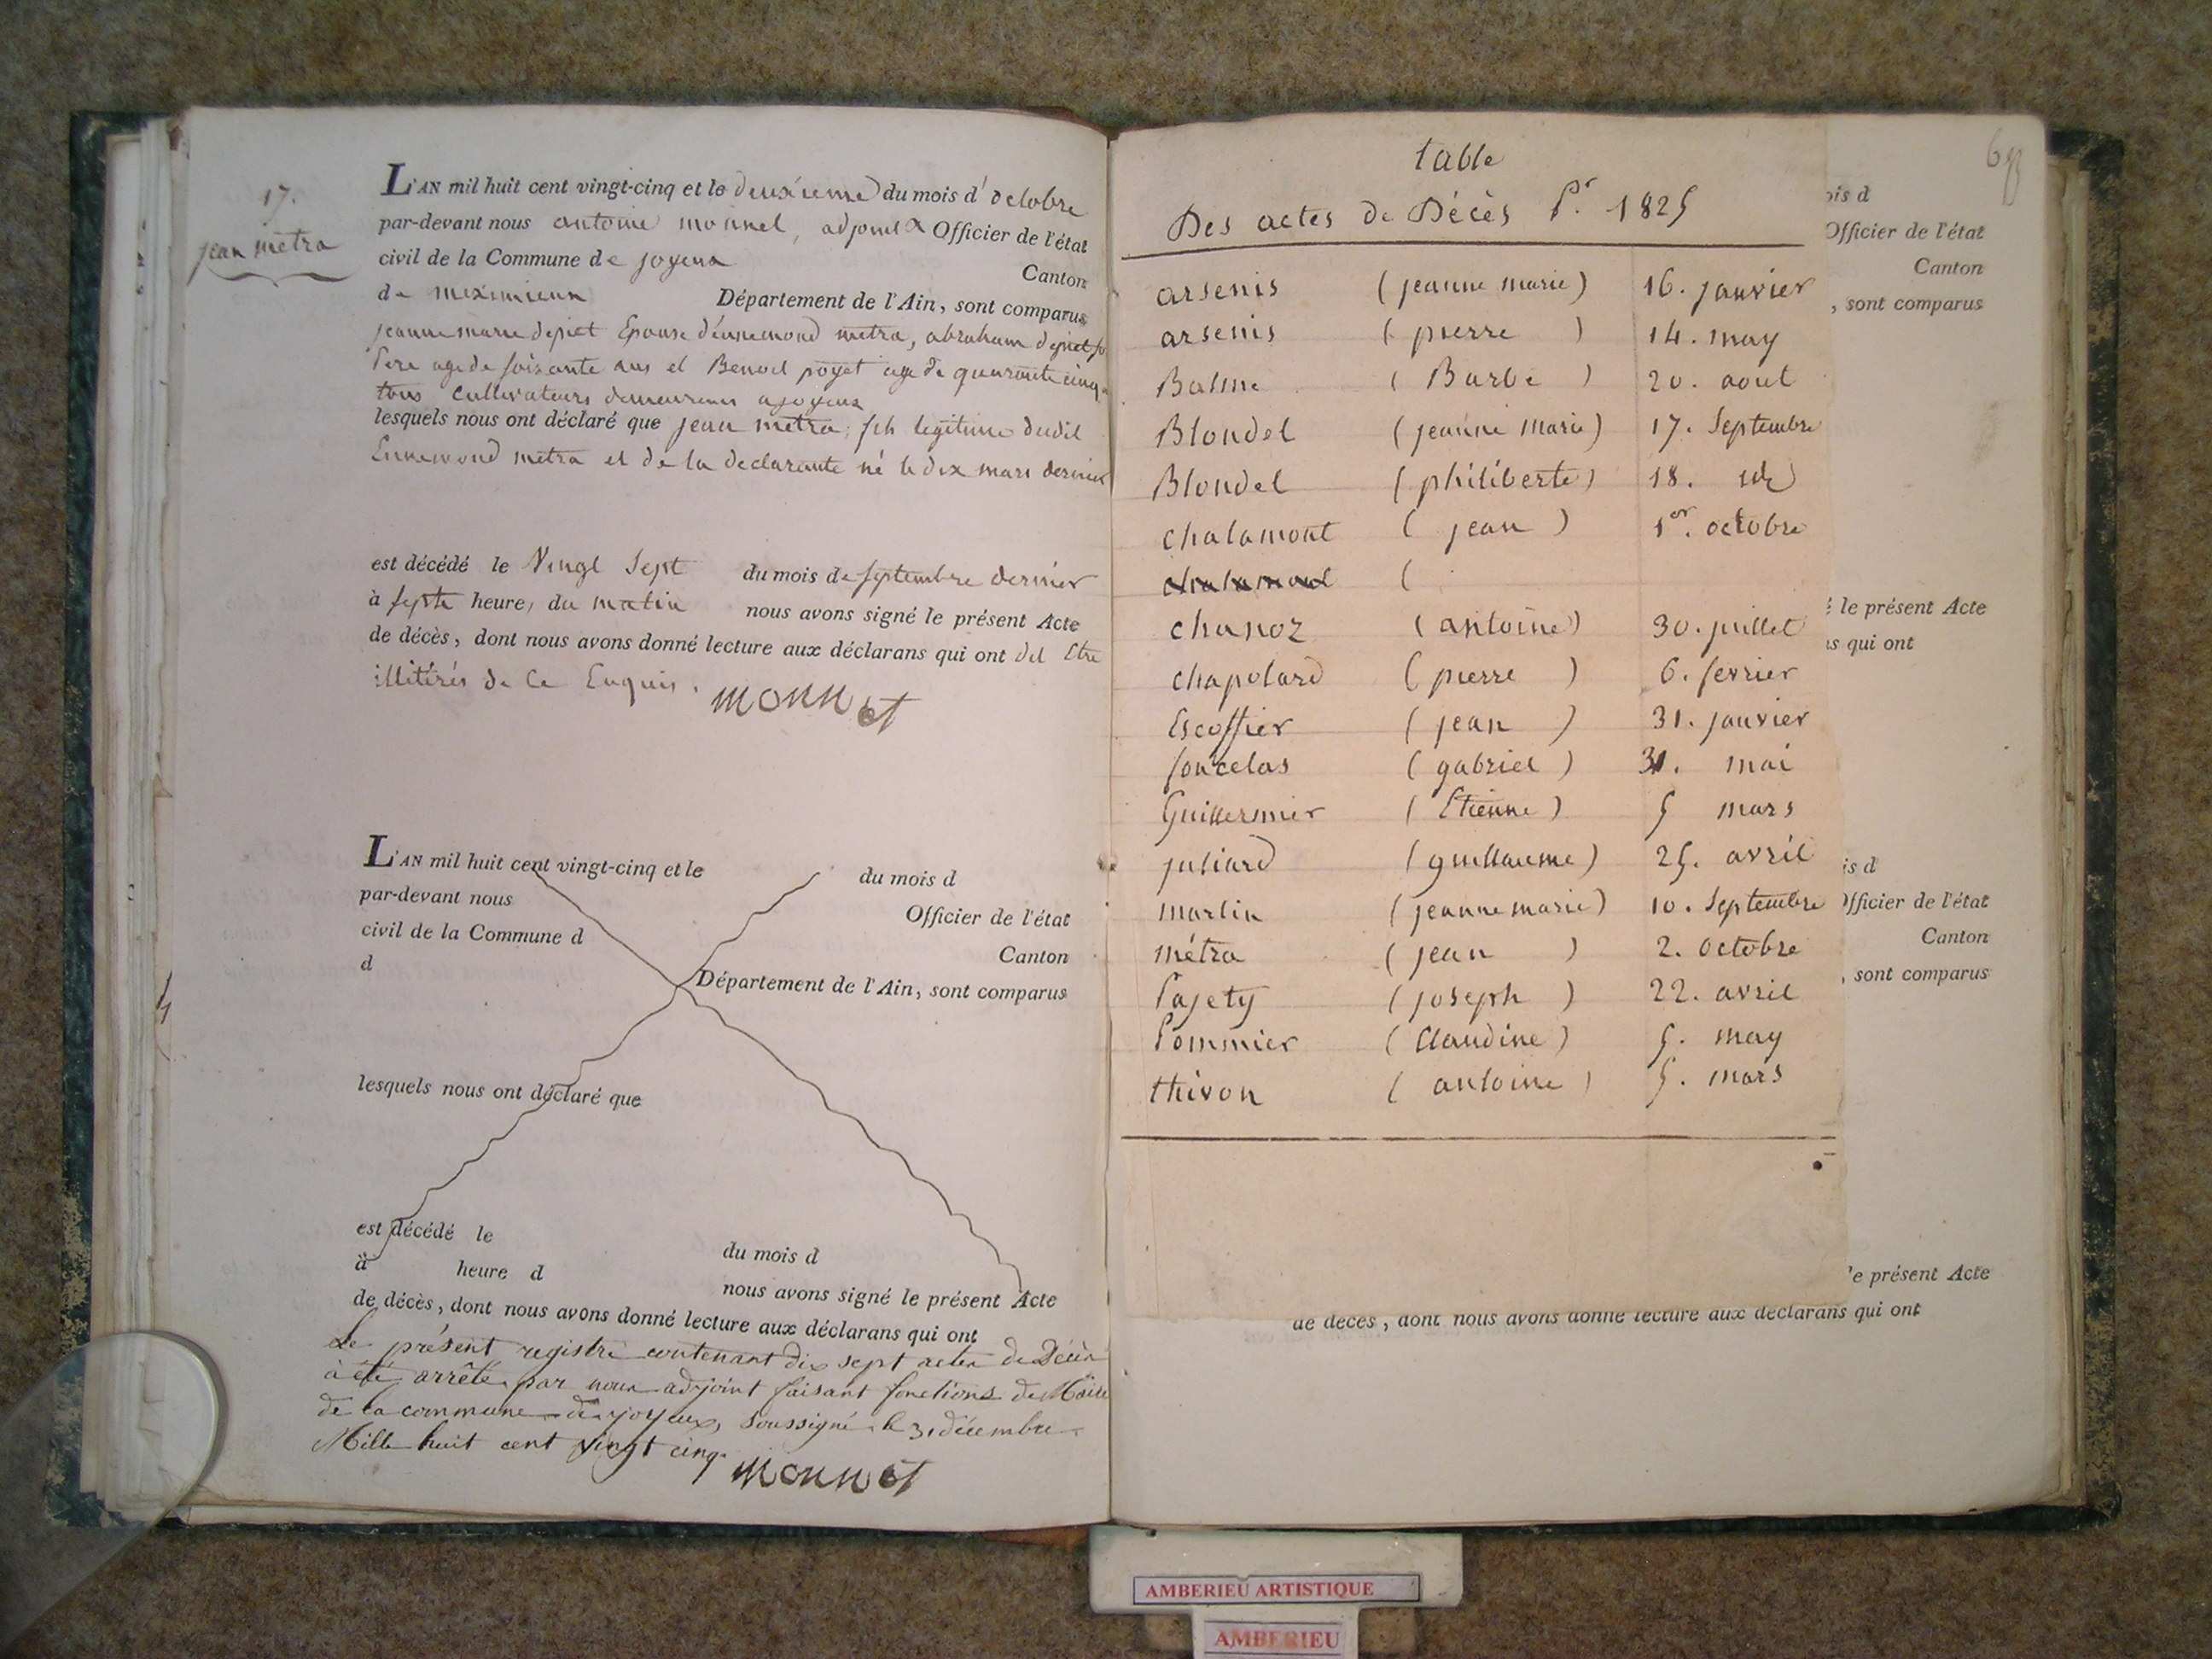 17.
jean métra
L'AN mil huit cent vingt-cinq et le deuxième du mois d'octobre
par-devant nous antoine monnet, adjoint Officier de l'état
civil de la Commune de joyeux
Canton
de meximieux Département de l'Ain, sont comparus
jeanne marie Epouse d'ennemond métra, abraham
Père agé de soixante ans et Benoit poyet agé de quarante cinq
tous cultivateurs demeurans a joyeux
lesquels nous ont déclaré que jean métra, fils legitime dudit
Ennemond métra et de la declarante né le dix mars dernier
est décédé le Vingt Sept du mois de septembre dernier
à septe heure, du matin nous avons signé le présent Acte
de décès, dont nous avons donné lecture aux déclarans qui ont dit Etre
illitérés de ce Enquis.
monnet
L'AN mil huit cent vingt-cinq et le du mois d
par-devant nous Officier de l'état
civil de la Commune d
Canton
d Département de l'Ain, sont comparus
lesquels nous ont déclaré que
est décédé le du mois d
à heure d nous avons signé le présent Acte
de décès, dont nous avons donné lecture aux déclarans qui ont
Le présent registre contenant dix sept actes de Décès
à été arrêté par nous adjoint faisant fonctions de Maire
de la commune de joyeux, soussigné le 31 décembre
Mille huit cent vingt cinq.
monnet
table
Des actes de Décès Pr. 1825
arsenis (jeanne marie) 16. janvier
arsenis (pierre) 14. may
Balme (Barbe) 20. aout
Blondel (jeanne marie) 17. Septembre
Blondel (philiberte) 18. id
chalamont (jean) 1er. octobre
chalamont (
chanoz (antoine) 30. juillet
chapolard (pierre) 6. fevrier
Escoffier (jean) 31. janvier
foucelas (gabriel) 31. mai
Guillermier (Etienne) 5 mars
juliard (guillaume) 25. avril
martin (jeanne marie) 10. Septembre
métra (jean) 2. octobre
Pajety (joseph) 22. avril
Pommier (Claudine) 5. may
thivon (antoine) 5. mars
ois d
Officier de l'état
Canton
, sont comparus
le présent Acte
s qui ont
is d
Officier de l'état
Canton
, sont comparus
le présent Acte
de décès, dont nous avons donné lecture aux déclarans qui ont
AMBERIEU ARTISTIQUE
AMBERIEU